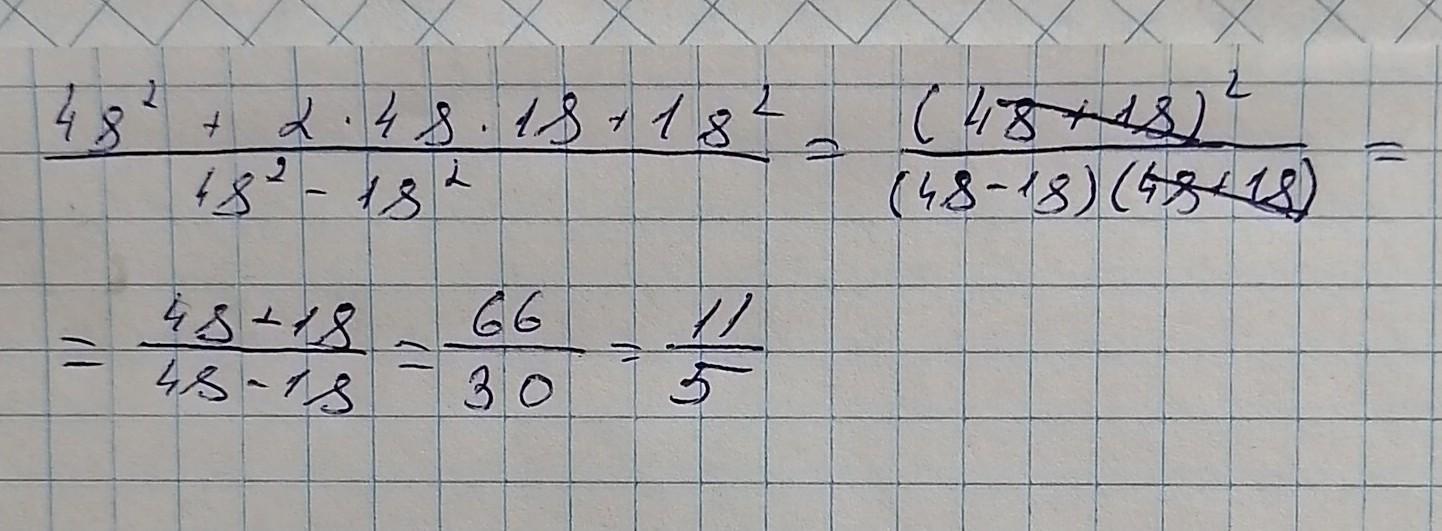 (48² + 2 · 48 · 18 + 18²) / (48² - 18²) = (48 + 18)² / ((48 - 18)(48 + 18)) =
= (48 + 18) / (48 - 18) = 66 / 30 = 11 / 5